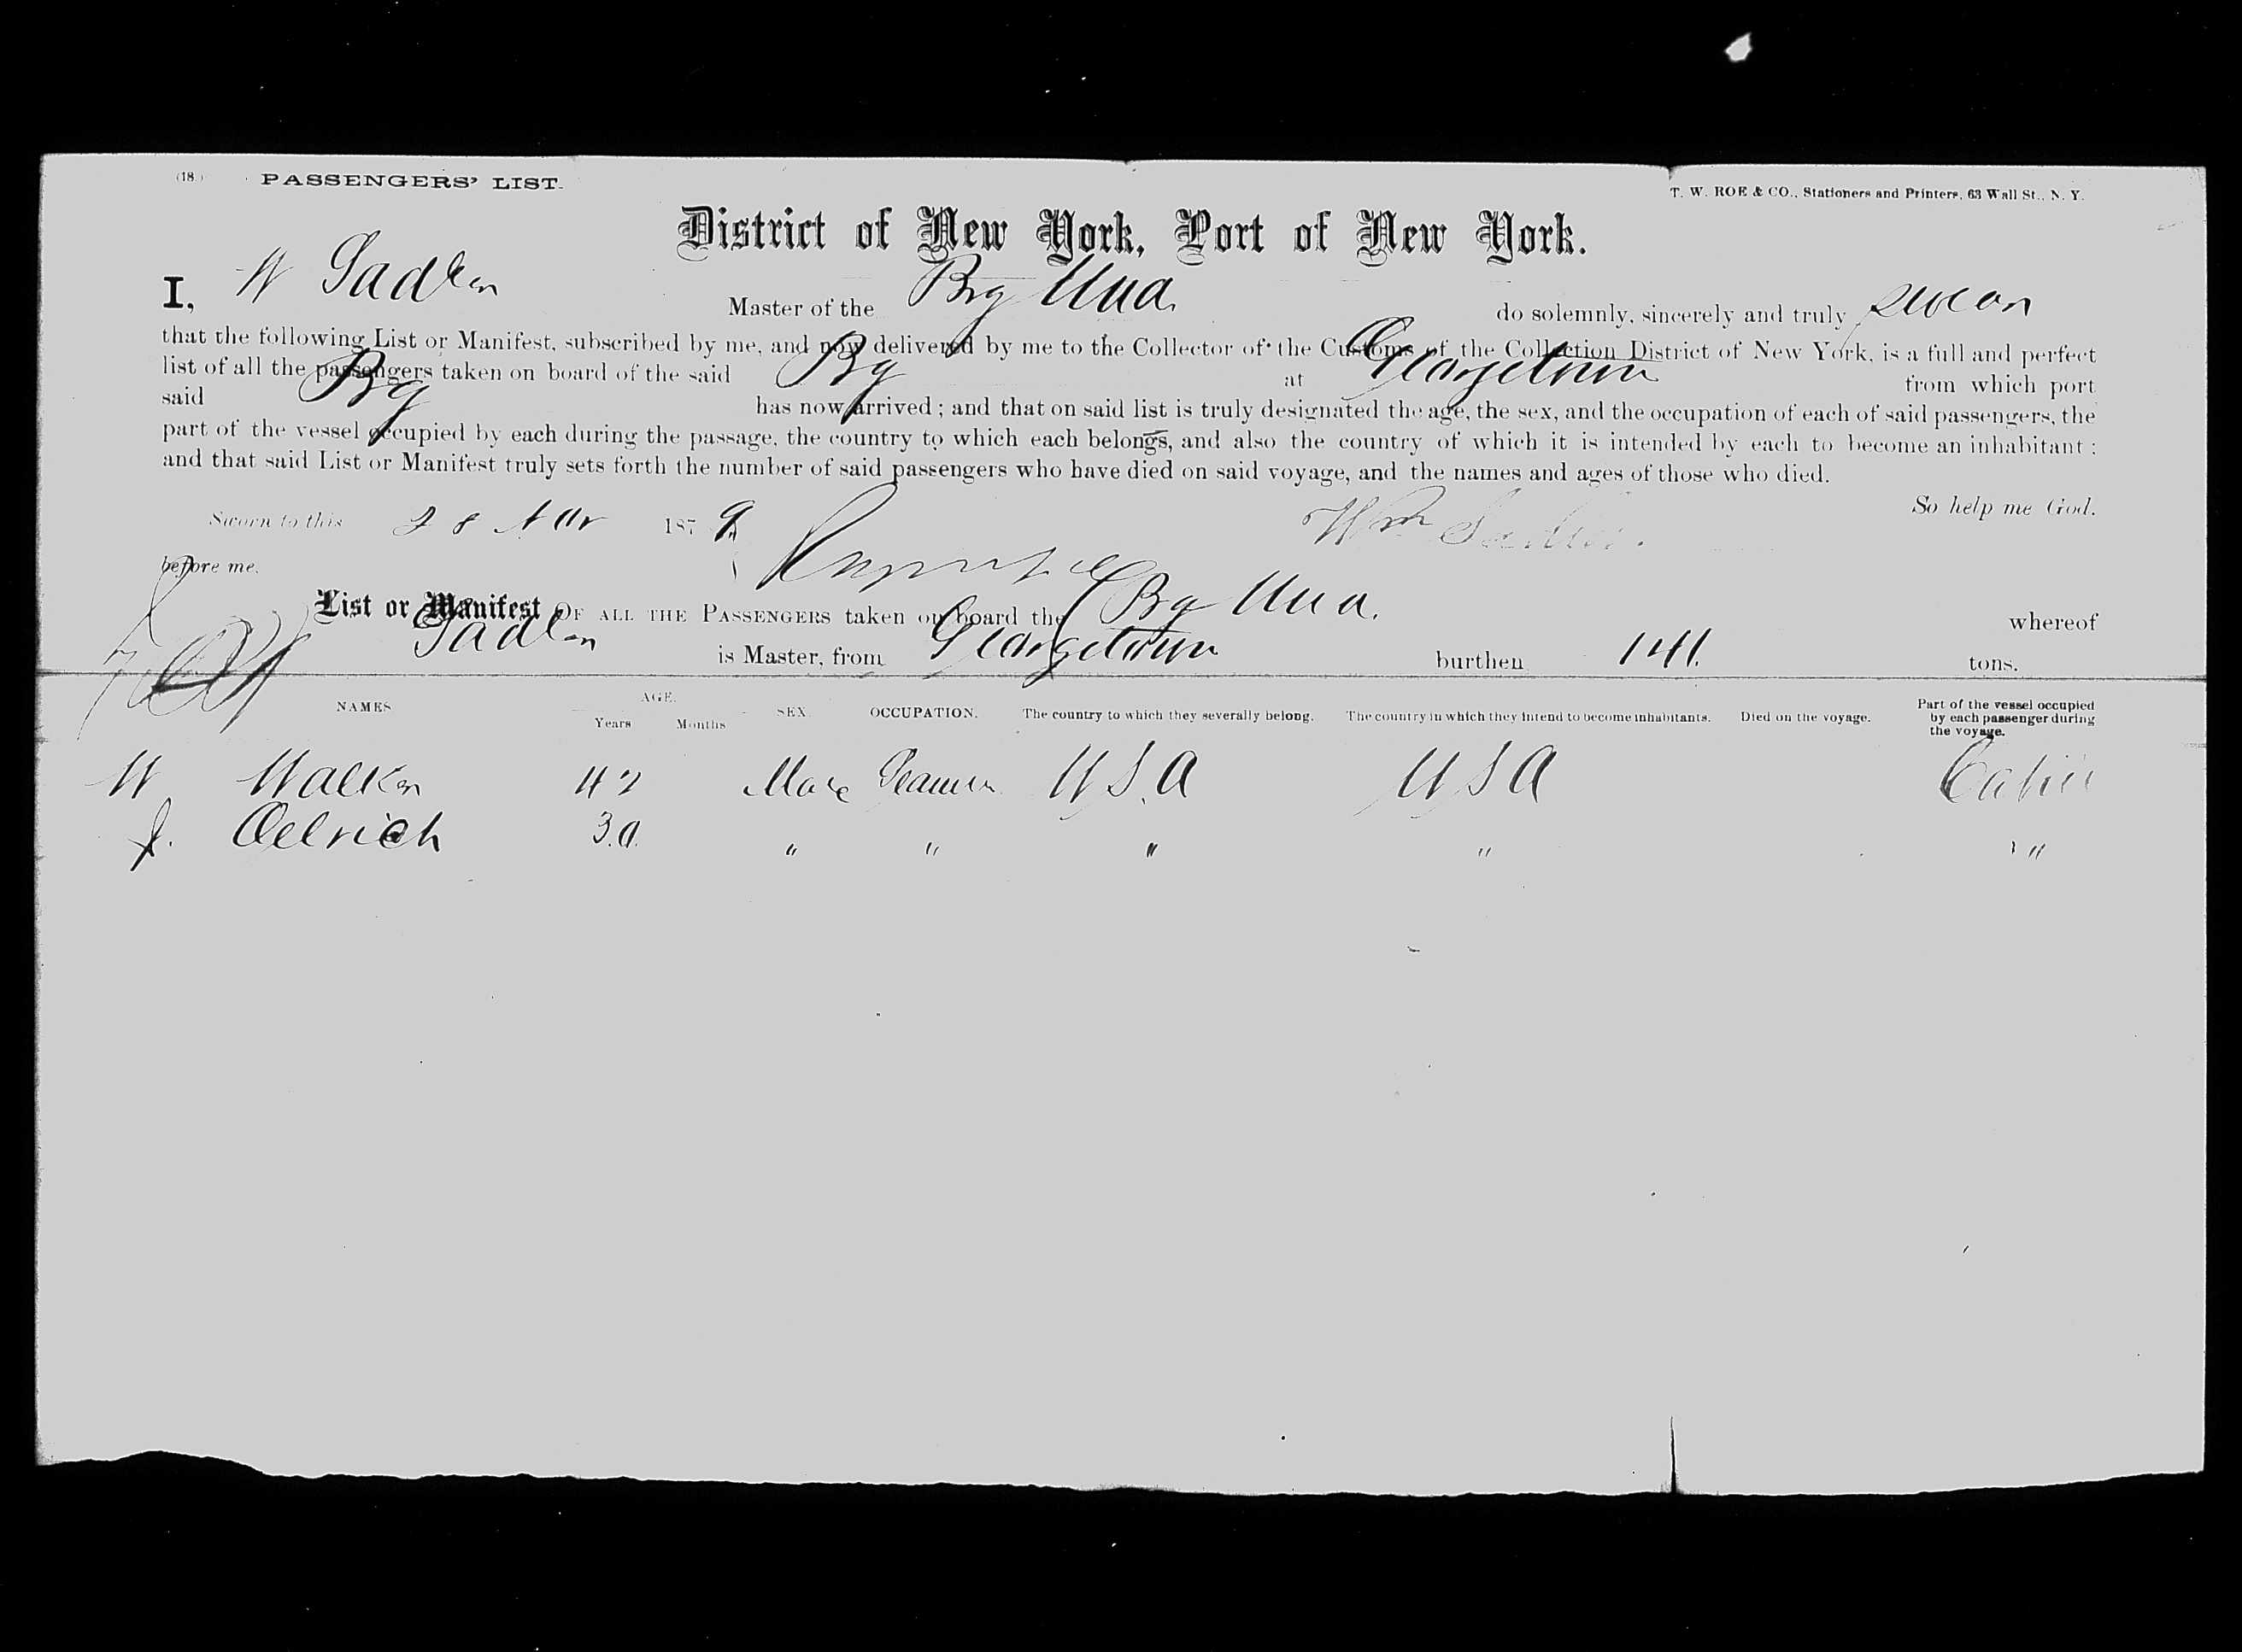 (18.) PASSENGERS' LIST. T. W. ROE & CO., Stationers and Printers, 63 Wall St., N. Y.
District of New York, Port of New York.
I, W Sadler Master of the Brg Una. do solemnly, sincerely and truly swear
that the following List or Manifest, subscribed by me, and now delivered by me to the Collector of the Customs of the Collection District of New York, is a full and perfect
list of all the passengers taken on board of the said Brg at Georgetown from which port
said Brg has now arrived ; and that on said list is truly designated the age, the sex, and the occupation of each of said passengers, the
part of the vessel occupied by each during the passage, the country to which each belongs, and also the country of which it is intended by each to become an inhabitant ;
and that said List or Manifest truly sets forth the number of said passengers who have died on said voyage, and the names and ages of those who died.
So help me God.
Sworn to this 28 1879 Wm Sadler.
before me.
List or Manifest OF ALL THE PASSENGERS taken on board the Brg Una. whereof
Sadler is Master, from Georgetown burthen 141. tons.
NAMES AGE. Years Months SEX OCCUPATION. The country to which they severally belong. The country in which they intend to become inhabitants. Died on the voyage. Part of the vessel occupied by each passenger during the voyage.
W Walker 42 Male Seaman U.S.A U S A Cabin
J. Oelrich 30. " " " " "